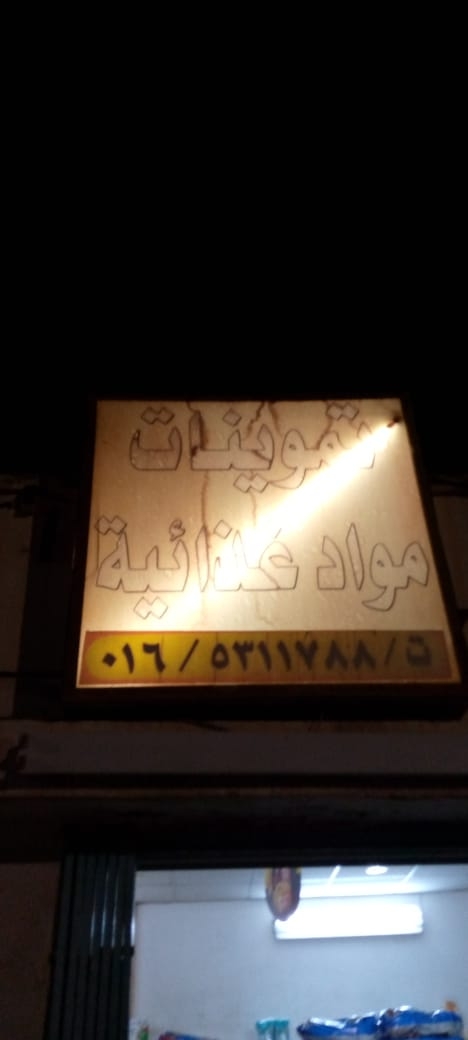 تموينات
مواد غذائية
ت/٥٣١١٧٨٨ / ٠١٦